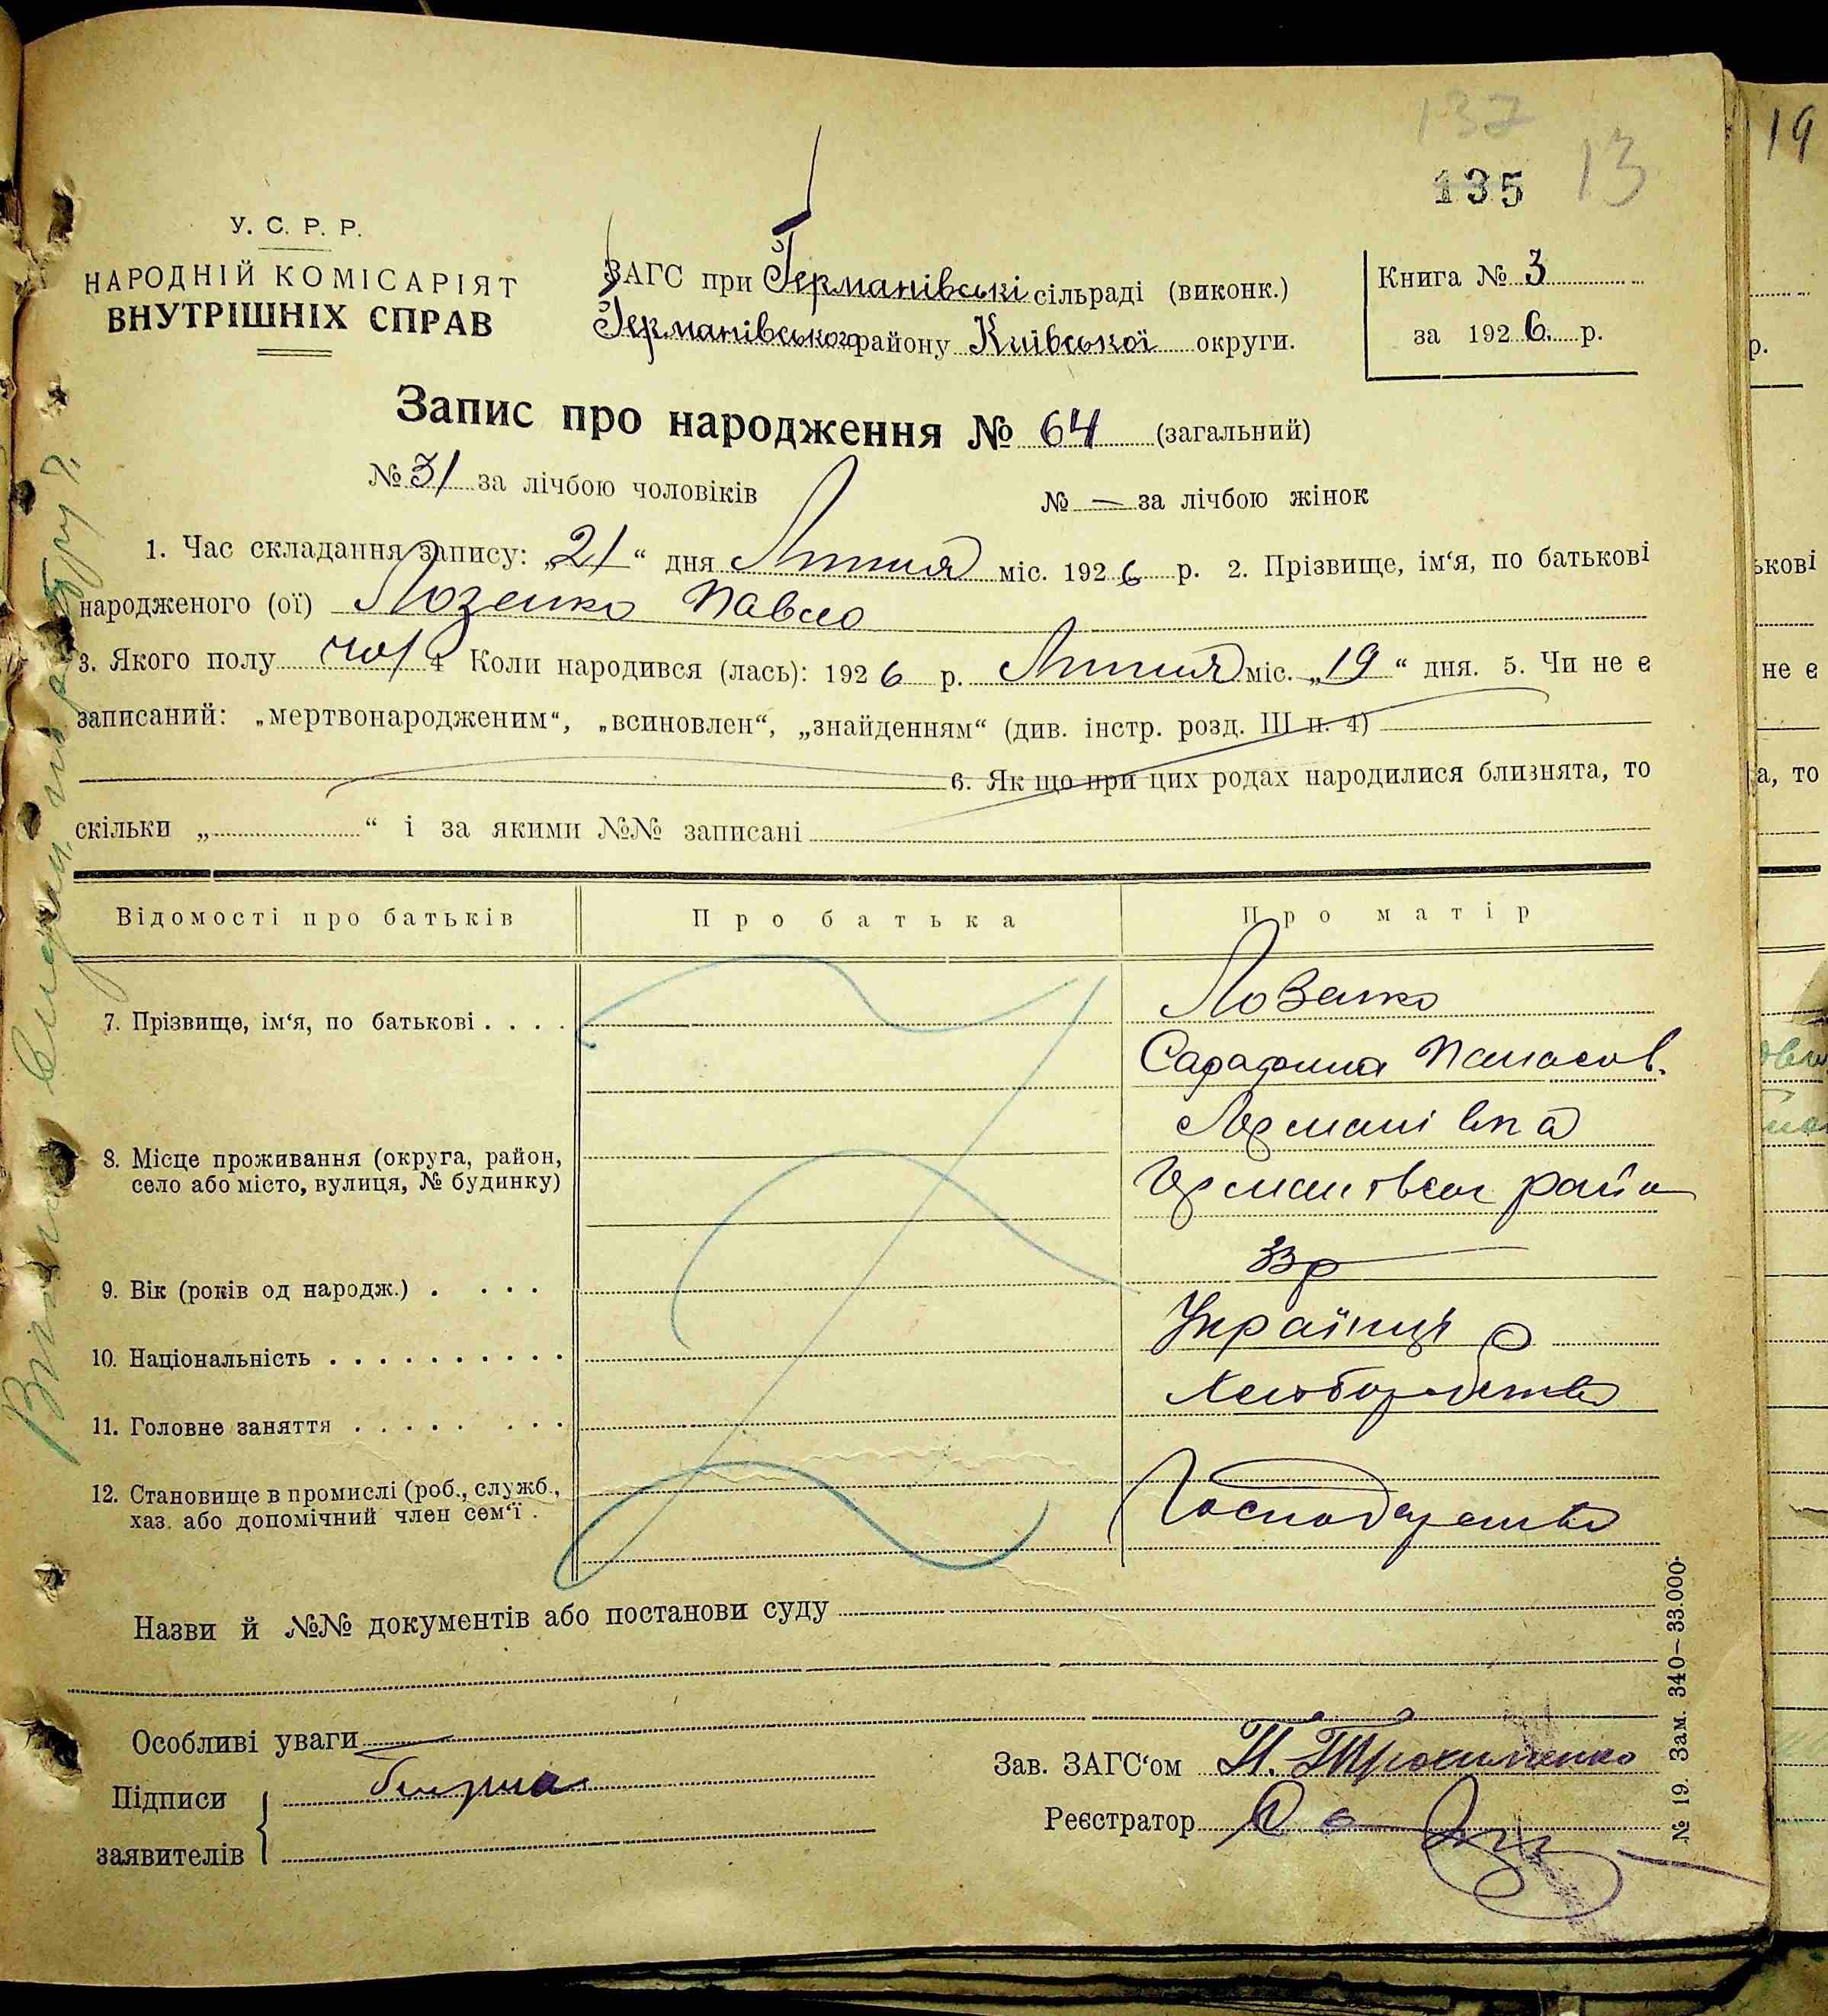 137
135 13
У. С. Р. Р.
НАРОДНІЙ КОМІСАРІЯТ
ВНУТРІШНІХ СПРАВ
ЗАГС при Германівські сільраді (виконк.)
Германівського району Київської округи.
Книга № 3
за 1926 р.
Запис про народження № 64 (загальний)
№ 31 за лічбою чоловіків № — за лічбою жінок
1. Час складання запису: „21“ дня Липня міс. 1926 р. 2. Прізвище, ім‘я, по батькові
народженого (ої) Лозенко Павло
3. Якого полу чол 4 Коли народився (лась): 1926 р. Липня міс. „19“ дня. 5. Чи не є
записаний: „мертвонародженим“, „всиновлен“, „знайденням“ (див. інстр. розд. III п. 4)
6. Як що при цих родах народилися близнята, то
скільки „ “ і за якими №№ записані
Відомості про батьків Про батька Про матір
7. Прізвище, ім‘я, по батькові . . . . Лозенко
Панасов.
8. Місце проживання (округа, район,
село або місто, вулиця, № будинку)
Германівка
райо
9. Вік (років од народж.) . . . . 33 р
10. Національність . . . . . . . . . . Українці
11. Головне заняття . . . . . . . . Хліборобство
12. Становище в промислі (роб., служб.,
хаз. або допомічний член сем‘ї .
Господарство
Назви й №№ документів або постанови суду
Особливі уваги
Підписи
заявителів
Зав. ЗАГС‘ом Н. Трохименко
Реєстратор
№ 19. Зам. 340–33.000.
19
р.
ькові
не є
а, то